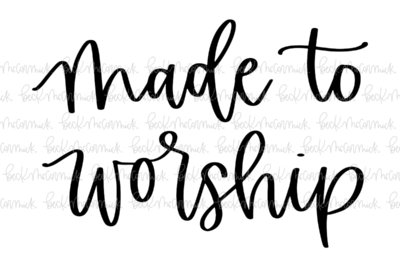 made to
worship